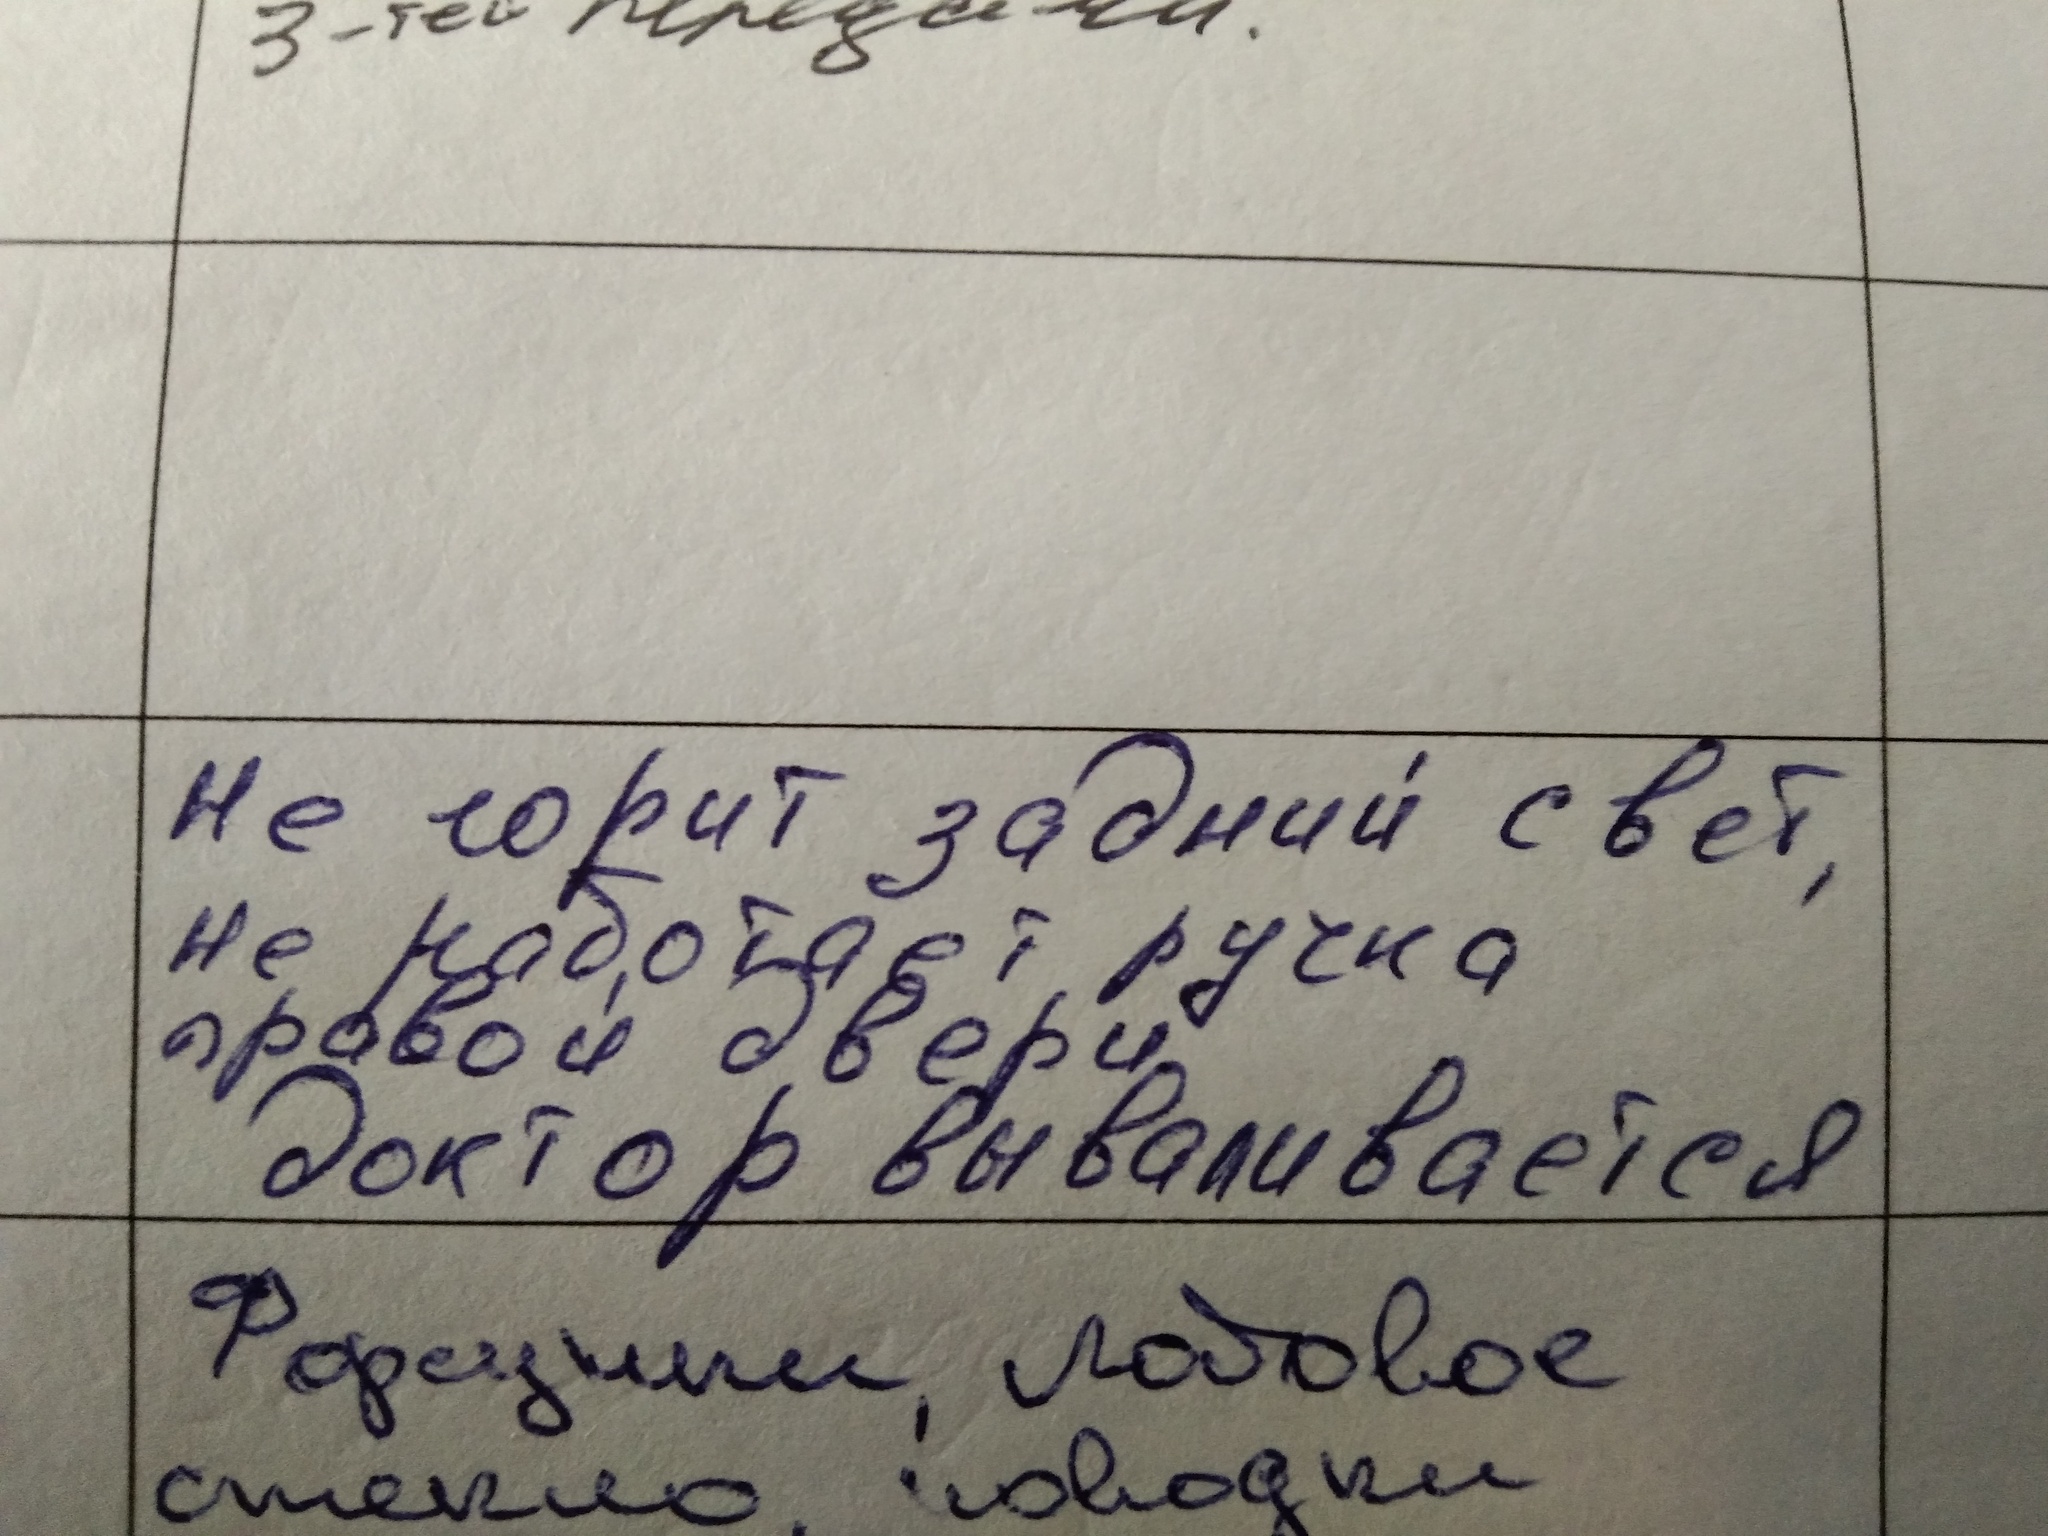 3-тей передачи.
не горит задний свет,
не работает ручка
правой двери,
доктор вываливается
Форсунки, лобовое
стекло, поводки